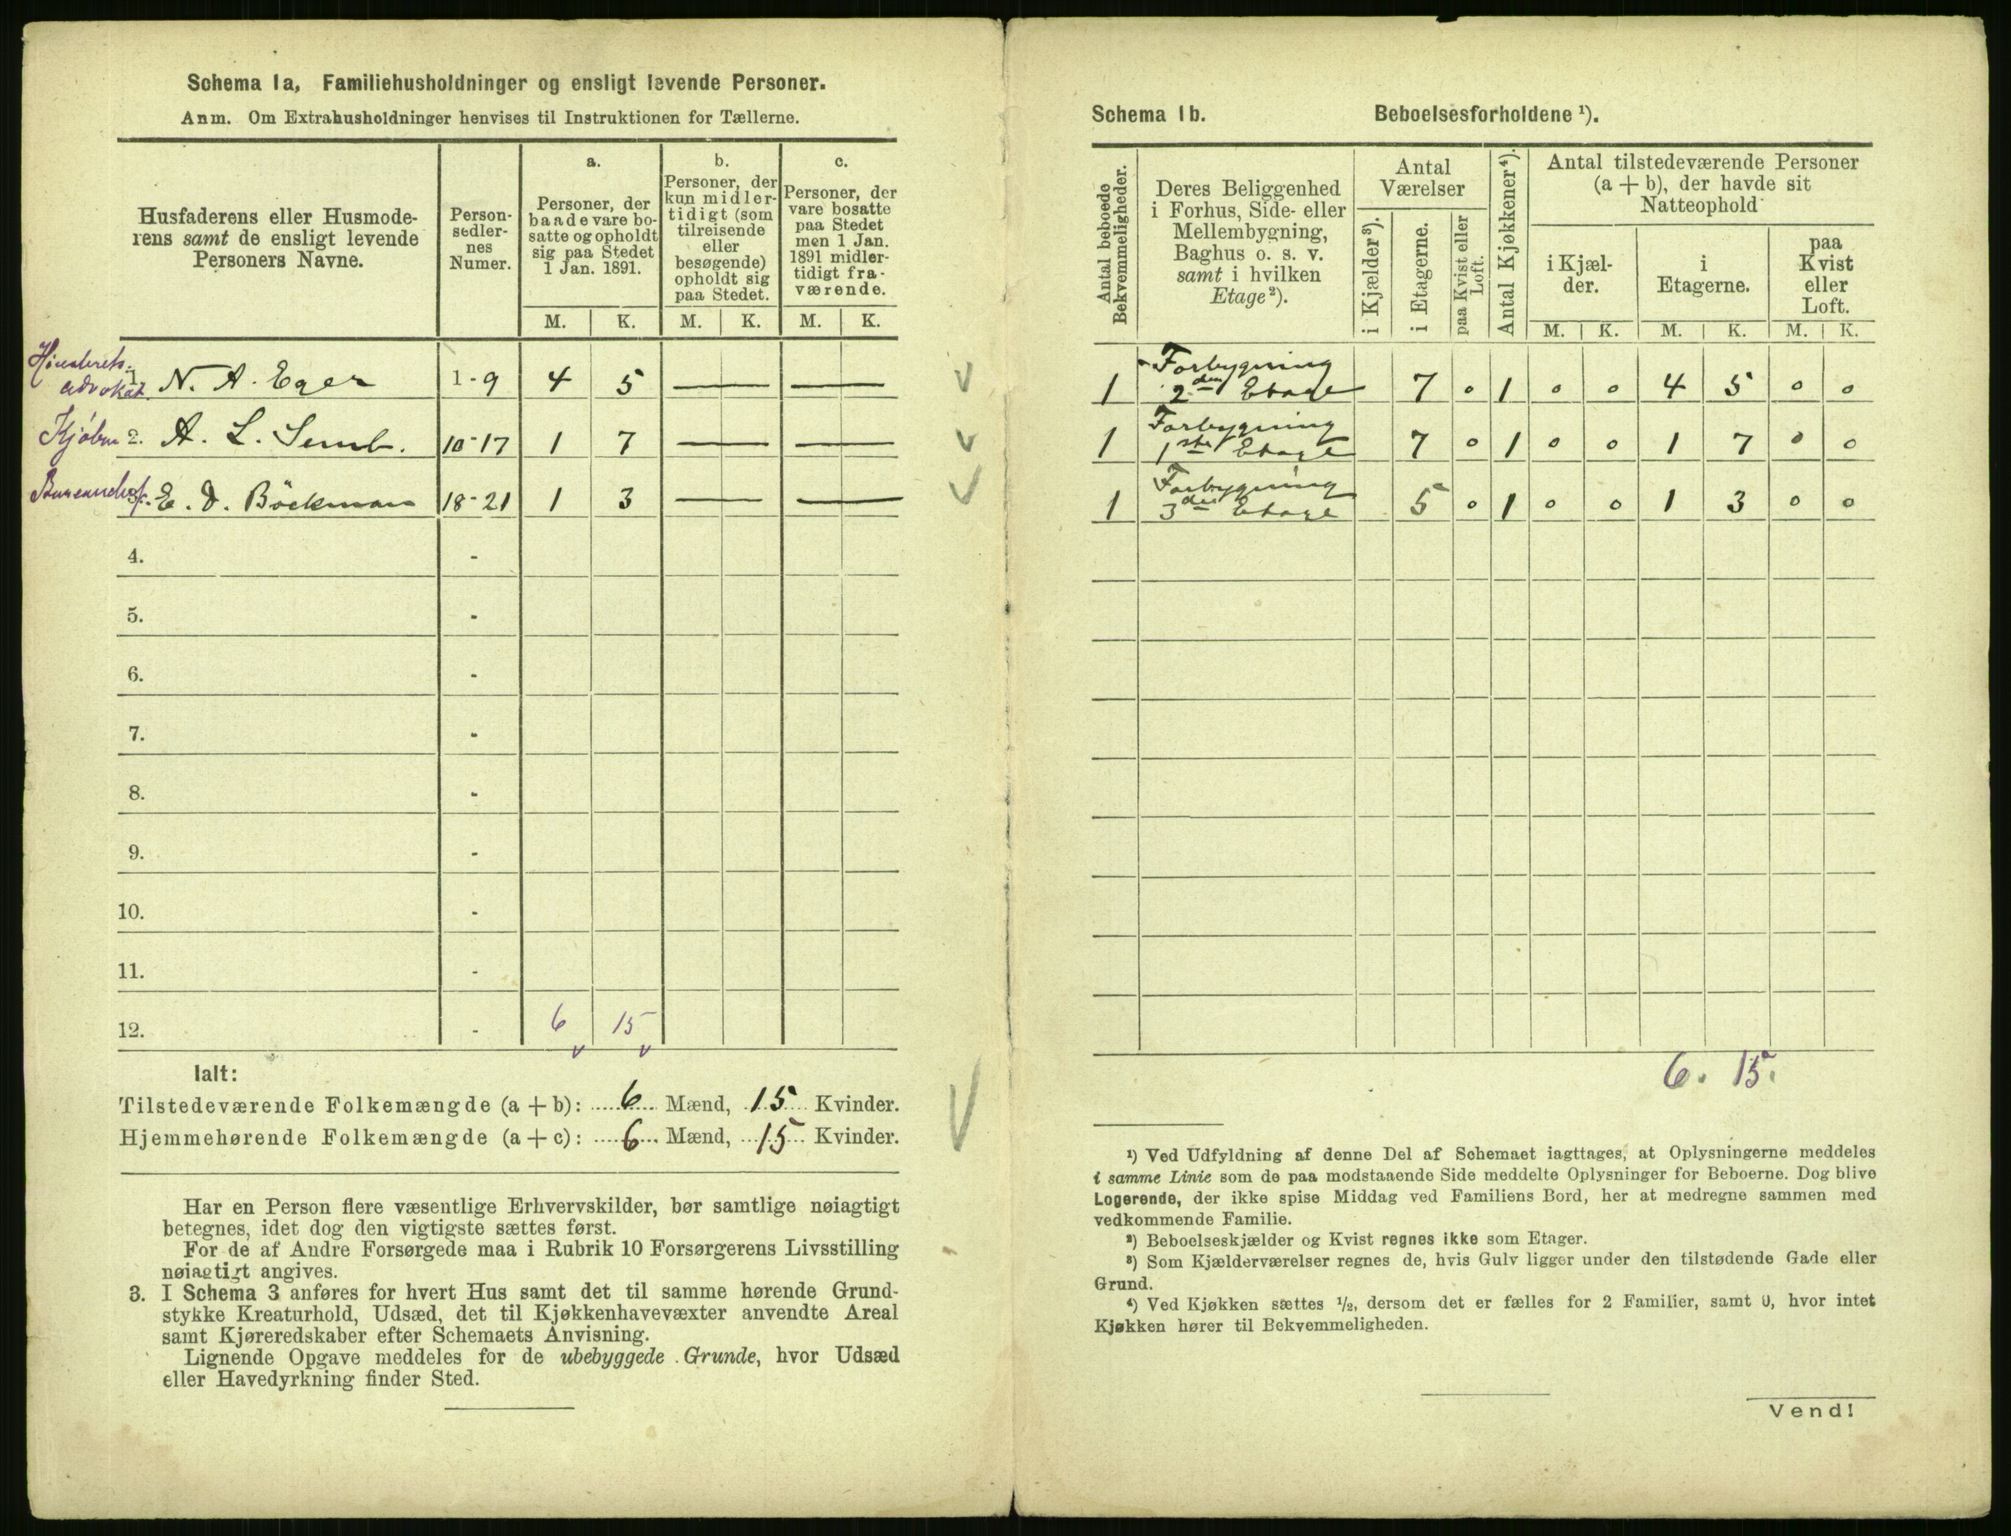 Schema 1a, Familiehusholdninger og ensligt levende Personer.
Anm. Om Extrahusholdninger henvises til Instruktionen for Tællerne.
Husfaderens eller Husmode-
rens samt de ensligt levende
Personers Navne.
Person-
sedler-
nes
Numer.
a.
Personer, der
baade vare bo-
satte og opholdt
sig paa Stedet
1 Jan. 1891.
b.
Personer, der
kun midler-
tidigt (som
tilreisende
eller
besøgende)
opholdt sig
paa Stedet.
c.
Personer, der
vare bosatte
paa Stedet
men 1 Jan.
1891 midler-
tidigt fra-
værende.
M. K. M. K. M. K.
Høiesterets-
advokat.
1. N. A. Eger 1-9 4 5 — —
Kjøbm 2. A. L. Semb. 10-17 1 7 — —
Bureauchef. E. D. Böckman 18-21 1 3 — —
4. -
5. -
6. -
7. -
8. -
9. -
10. -
11. -
12. - 6 15
Ialt:
Tilstedeværende Folkemængde (a + b): 6 Mænd, 15 Kvinder.
Hjemmehørende Folkemængde (a + c): 6 Mænd, 15 Kvinder.
Har en Person flere væsentlige Erhvervskilder, bør samtlige nøiagtigt
betegnes, idet dog den vigtigste sættes først.
For de af Andre Forsørgede maa i Rubrik 10 Forsørgerens Livsstilling
nøiagtigt angives.
3. I Schema 3 anføres for hvert Hus samt det til samme hørende Grund-
stykke Kreaturhold, Udsæd, det til Kjøkkenhavevæxter anvendte Areal
samt Kjøreredskaber efter Schemaets Anvisning.
Lignende Opgave meddeles for de ubebyggede Grunde, hvor Udsæd
eller Havedyrkning finder Sted.
Schema 1b. Beboelsesforholdene ¹).
Antal beboede
Bekvemmeligheder.
Deres Beliggenhed
i Forhus, Side- eller
Mellembygning,
Baghus o. s. v.
samt i hvilken
Etage²).
Antal
Værelser
i Kjælder³).
i Etagerne.
paa Kvist eller
Loft.
Antal Kjøkkener⁴).
Antal tilstedeværende Personer
(a + b), der havde sit
Natteophold
i Kjæl-
der.
i
Etagerne.
paa
Kvist
eller
Loft.
M. K. M. K. M. K.
Forbygning
1 2den Etage 7 0 1 0 0 4 5 0 0
Forbygning
1 1ste Etage 7 0 1 0 0 1 7 0 0
Forbygning
1 3die Etage 5 0 1 0 0 1 3 0 0
6. 15.
¹) Ved Udfyldning af denne Del af Schemaet iagttages, at Oplysningerne meddeles
i samme Linie som de paa modstaaende Side meddelte Oplysninger for Beboerne. Dog blive
Logerende, der ikke spise Middag ved Familiens Bord, her at medregne sammen med
vedkommende Familie.
²) Beboelseskjælder og Kvist regnes ikke som Etager.
³) Som Kjælderværelser regnes de, hvis Gulv ligger under den tilstødende Gade eller
Grund.
⁴) Ved Kjøkken sættes ½, dersom det er fælles for 2 Familier, samt 0, hvor intet
Kjøkken hører til Bekvemmeligheden.
Vend!